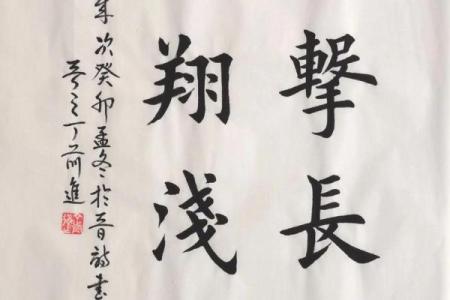 擊長
翔淺
次癸卯孟冬於書
丁前進